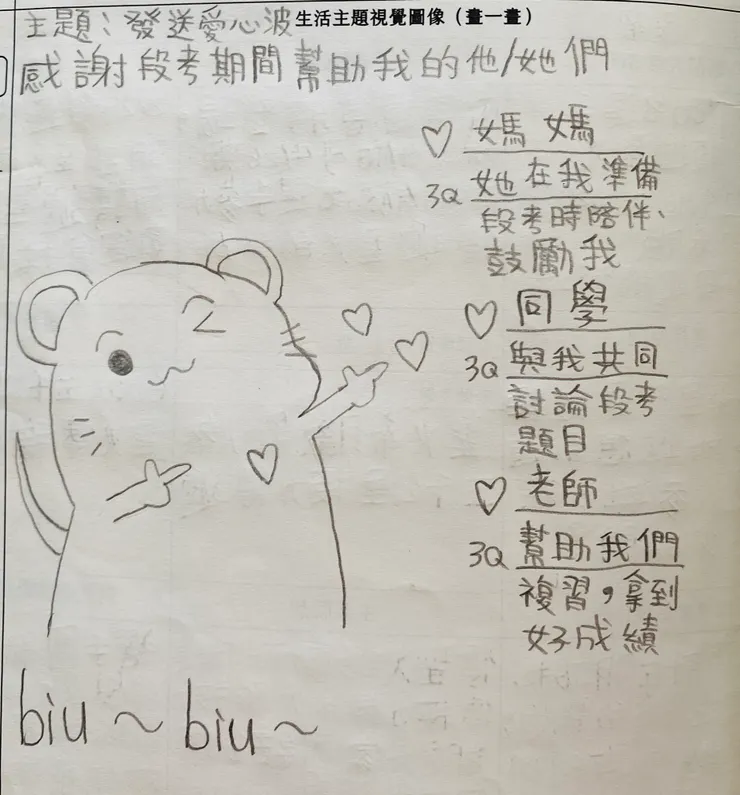 生活主題視覺圖像（畫一畫）
主題：發送愛心波
感謝段考期間幫助我的他/她們
媽媽
3Q 她在我準備
段考時陪伴、
鼓勵我
同學
3Q 與我共同
討論段考
題目
老師
3Q 幫助我們
複習，拿到
好成績
biu～biu～